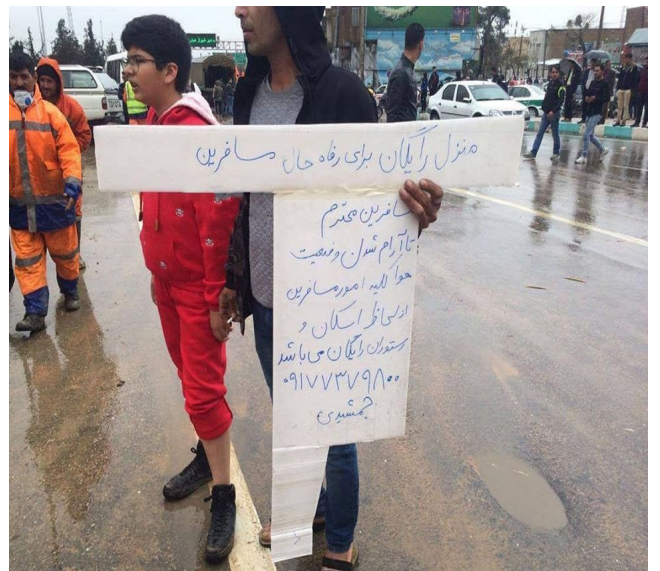 منزل رایگان برای رفاه حال مسافرین
مسافرین محترم
تا آرام شدن وضعیت
هوا کلیه امور مسافرین
از لحاظ اسکان و
رستوران رایگان می باشد
۰۹۱۷۷۳۷۹۸۰۰
جمشیدی